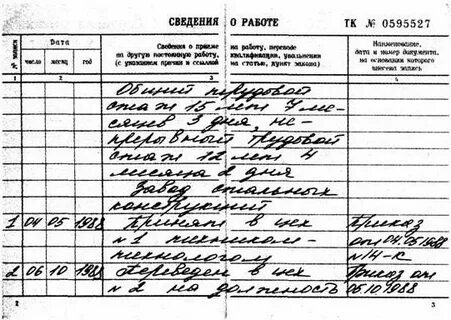 СВЕДЕНИЯ О РАБОТЕ ТК № 0595527
№ записи
Дата
число месяц год
Сведения о приеме на работу, переводе
на другую постоянную работу, квалификации, увольнении
(с указанием причин и ссылкой на статью, пункт закона)
Наименование,
дата и номер документа,
на основании которого
внесена запись
1 2 3 4
Общий трудовой
стаж 15 лет 7 ме-
сяцев 3 дня, не-
прерывный трудовой
стаж 12 лет 4
месяца 2 дня
Завод стальных
конструкций
1 04 05 1988 Принят в цех Приказ
№1 техником- от 04.05.1988
технологом №14-к
2 06 10 1988 Переведен в цех Приказ от
№2 на должность 06.10.1988
2 3